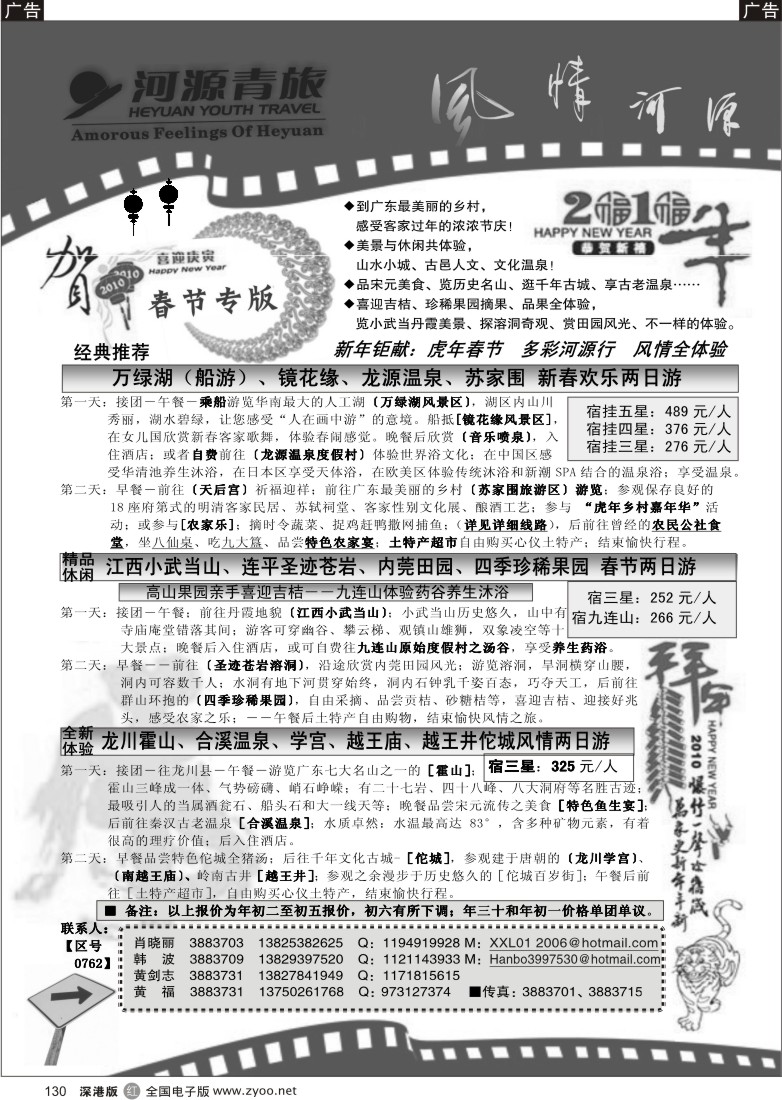 广告
广告
河源青旅
HEYUAN YOUTH TRAVEL
Amorous Feelings Of Heyuan
風情河源
◆到广东最美丽的乡村，
感受客家过年的浓浓节庆！
◆美景与休闲共体验，
山水小城、古邑人文、文化温泉！
◆品宋元美食、览历史名山、逛千年古城、享古老温泉……
◆喜迎吉桔、珍稀果园摘果、品果全体验，
览小武当丹霞美景、探溶洞奇观、赏田园风光、不一样的体验。
2010
HAPPY NEW YEAR
恭贺新禧
年
贺
2010
2010
喜迎庆寅
Happy New Year
春节专版
经典推荐
新年钜献：虎年春节 多彩河源行 风情全体验
万绿湖（船游）、镜花缘、龙源温泉、苏家围 新春欢乐两日游
第一天：接团－午餐－乘船游览华南最大的人工湖〔万绿湖风景区〕，湖区内山川
秀丽，湖水碧绿，让您感受“人在画中游”的意境。船抵[镜花缘风景区]，
在女儿国欣赏新春客家歌舞，体验春闹感觉。晚餐后欣赏〔音乐喷泉〕，入
住酒店；或者自费前往〔龙源温泉度假村〕体验世界浴文化；在中国区感
受华清池养生沐浴，在日本区享受天体浴，在欧美区体验传统沐浴和新潮 SPA 结合的温泉浴；享受温泉。
宿挂五星：489 元/人
宿挂四星：376 元/人
宿挂三星：276 元/人
第二天：早餐－前往〔天后宫〕祈福迎祥；前往广东最美丽的乡村〔苏家围旅游区〕游览；参观保存良好的
18 座府第式的明清客家民居、苏轼祠堂、客家性别文化展、酿酒工艺；参与 “虎年乡村嘉年华”活
动；或参与[农家乐]；摘时令蔬菜、捉鸡赶鸭撒网捕鱼；（详见详细线路），后前往曾经的农民公社食
堂，坐八仙桌、吃九大簋、品尝特色农家宴；土特产超市自由购买心仪土特产；结束愉快行程。
精品休闲
江西小武当山、连平圣迹苍岩、内莞田园、四季珍稀果园 春节两日游
高山果园亲手喜迎吉桔－－九连山体验药谷养生沐浴
宿三星：252 元/人
宿九连山：266 元/人
第一天：接团－午餐；前往丹霞地貌〔江西小武当山〕；小武当山历史悠久，山中有
寺庙庵堂错落其间；游客可穿幽谷、攀云梯、观镇山雄狮，双象凌空等十
大景点；晚餐后入住酒店，或可自费往九连山原始度假村之汤谷，享受养生药浴。
第二天：早餐－－前往〔圣迹苍岩溶洞〕，沿途欣赏内莞田园风光；游览溶洞，旱洞横穿山腰，
洞内可容数千人；水洞有地下河贯穿始终，洞内石钟乳千姿百态，巧夺天工，后前往
群山环抱的〔四季珍稀果园〕，自由采摘、品尝贡桔、砂糖桔等，喜迎吉桔、迎接好兆
头，感受农家之乐；－－午餐后土特产自由购物，结束愉快风情之旅。
拜年
HAPPY NEW YEAR
2010
爆竹一声除旧岁
萬家更新年年新
全新体验
龙川霍山、合溪温泉、学宫、越王庙、越王井佗城风情两日游
第一天：接团－往龙川县－午餐－游览广东七大名山之一的［霍山］；
宿三星：325 元/人
霍山三峰成一体、气势磅礴、峭石峥嵘；有二十七岩、四十八峰、八大洞府等名胜古迹；
最吸引人的当属酒瓮石、船头石和大一线天等；晚餐品尝宋元流传之美食［特色鱼生宴］；
后前往秦汉古老温泉［合溪温泉］；水质卓然；水温最高达 83°，含多种矿物元素，有着
很高的理疗价值；后入住酒店。
第二天：早餐品尝特色佗城全猪汤；后往千年文化古城－［佗城］，参观建于唐朝的〔龙川学宫〕、
〔南越王庙〕、岭南古井［越王井］；参观之余漫步于历史悠久的［佗城百岁街］；午餐后前
往［土特产超市］，自由购买心仪土特产，结束愉快行程。
■ 备注：以上报价为年初二至初五报价，初六有所下调；年三十和年初一价格单团单议。
联系人：
【区号
0762】
肖晓丽 3883703 13825382625 Q：1194919928 M：XXL01 2006@hotmail.com
韩 波 3883709 13829397520 Q：1121143933 M：Hanbo3997530@hotmail.com
黄剑志 3883731 13827841949 Q：1171815615
黄 福 3883731 13750261768 Q：973127374 ■传真：3883701、3883715
130 深港版 红 全国电子版 www.zyoo.net